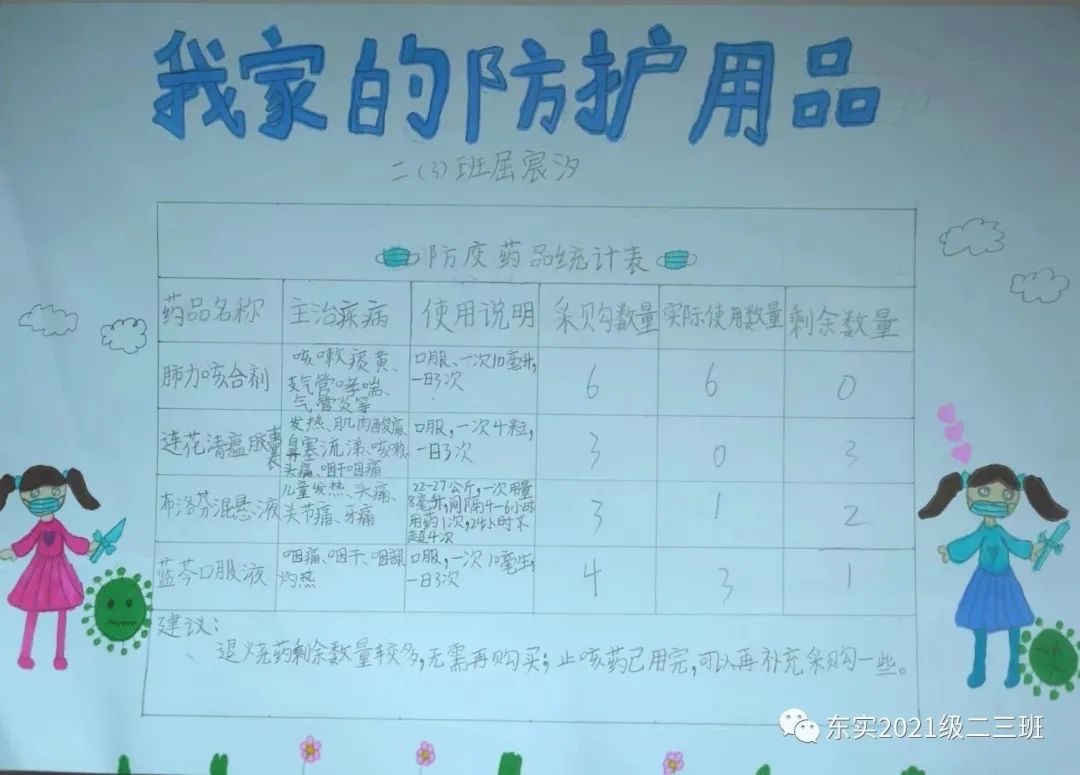 我家的防护用品
二(3)班屈宸汐
防疫药品统计表
药品名称 主治疾病 使用说明 采购数量 实际使用数量 剩余数量
肺力咳合剂 咳嗽痰黄、 口服、一次10毫升, 6 6 0
支气管哮喘、 一日3次
气管炎等
连花清瘟胶囊 发热、肌肉酸痛、 口服,一次4粒, 3 0 3
鼻塞流涕、咳嗽、 一日3次
头痛、咽干咽痛
布洛芬混悬液 儿童发热、头痛、 22-27公斤,一次用量 3 1 2
关节痛、牙痛 8毫升,间隔4-6小时
用药1次,24小时不
超4次
蓝芩口服液 咽痛、咽干、咽部 口服,一次10毫升, 4 3 1
灼热 一日3次
建议:
退烧药剩余数量较多,无需再购买;止咳药已用完,可以再补充采购一些。
东实2021级二三班